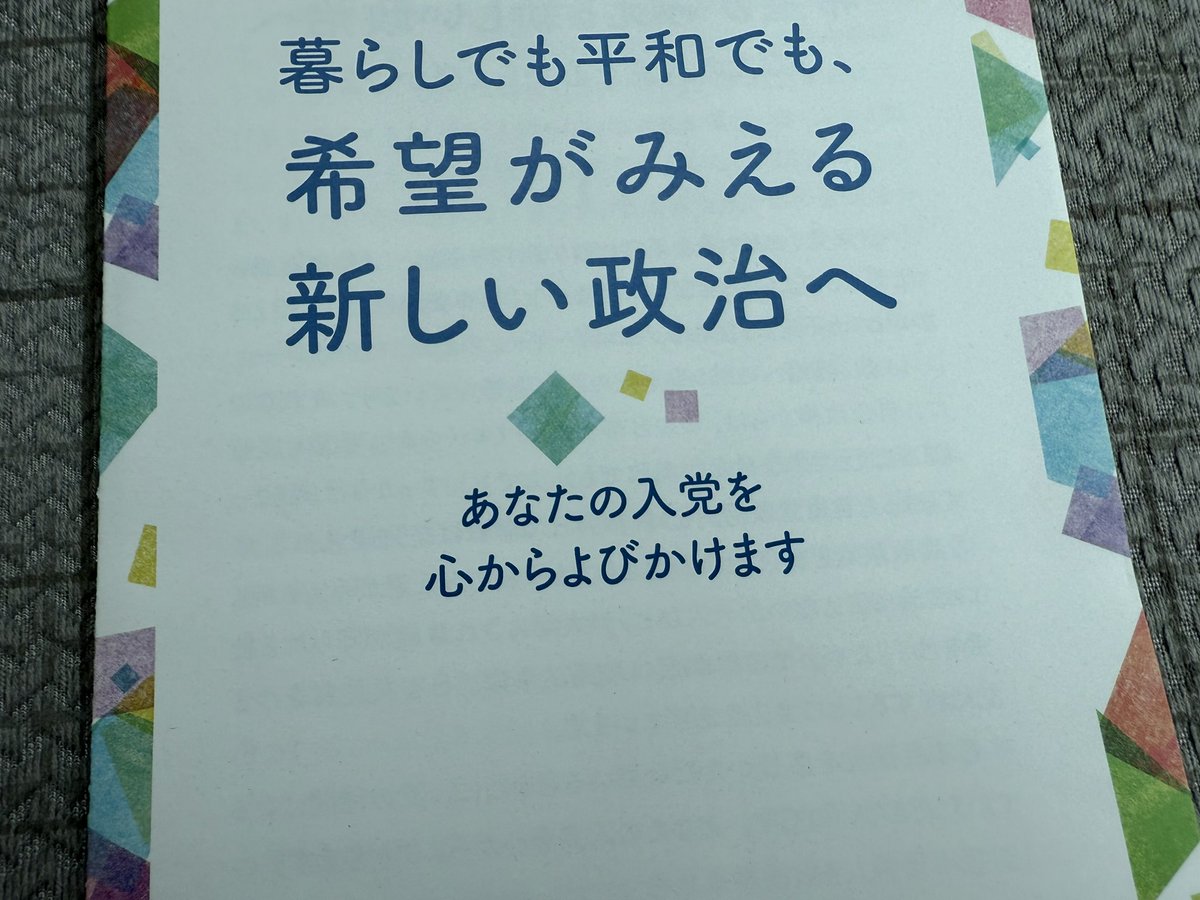 暮らしでも平和でも、
希望がみえる
新しい政治へ
あなたの入党を
心からよびかけます